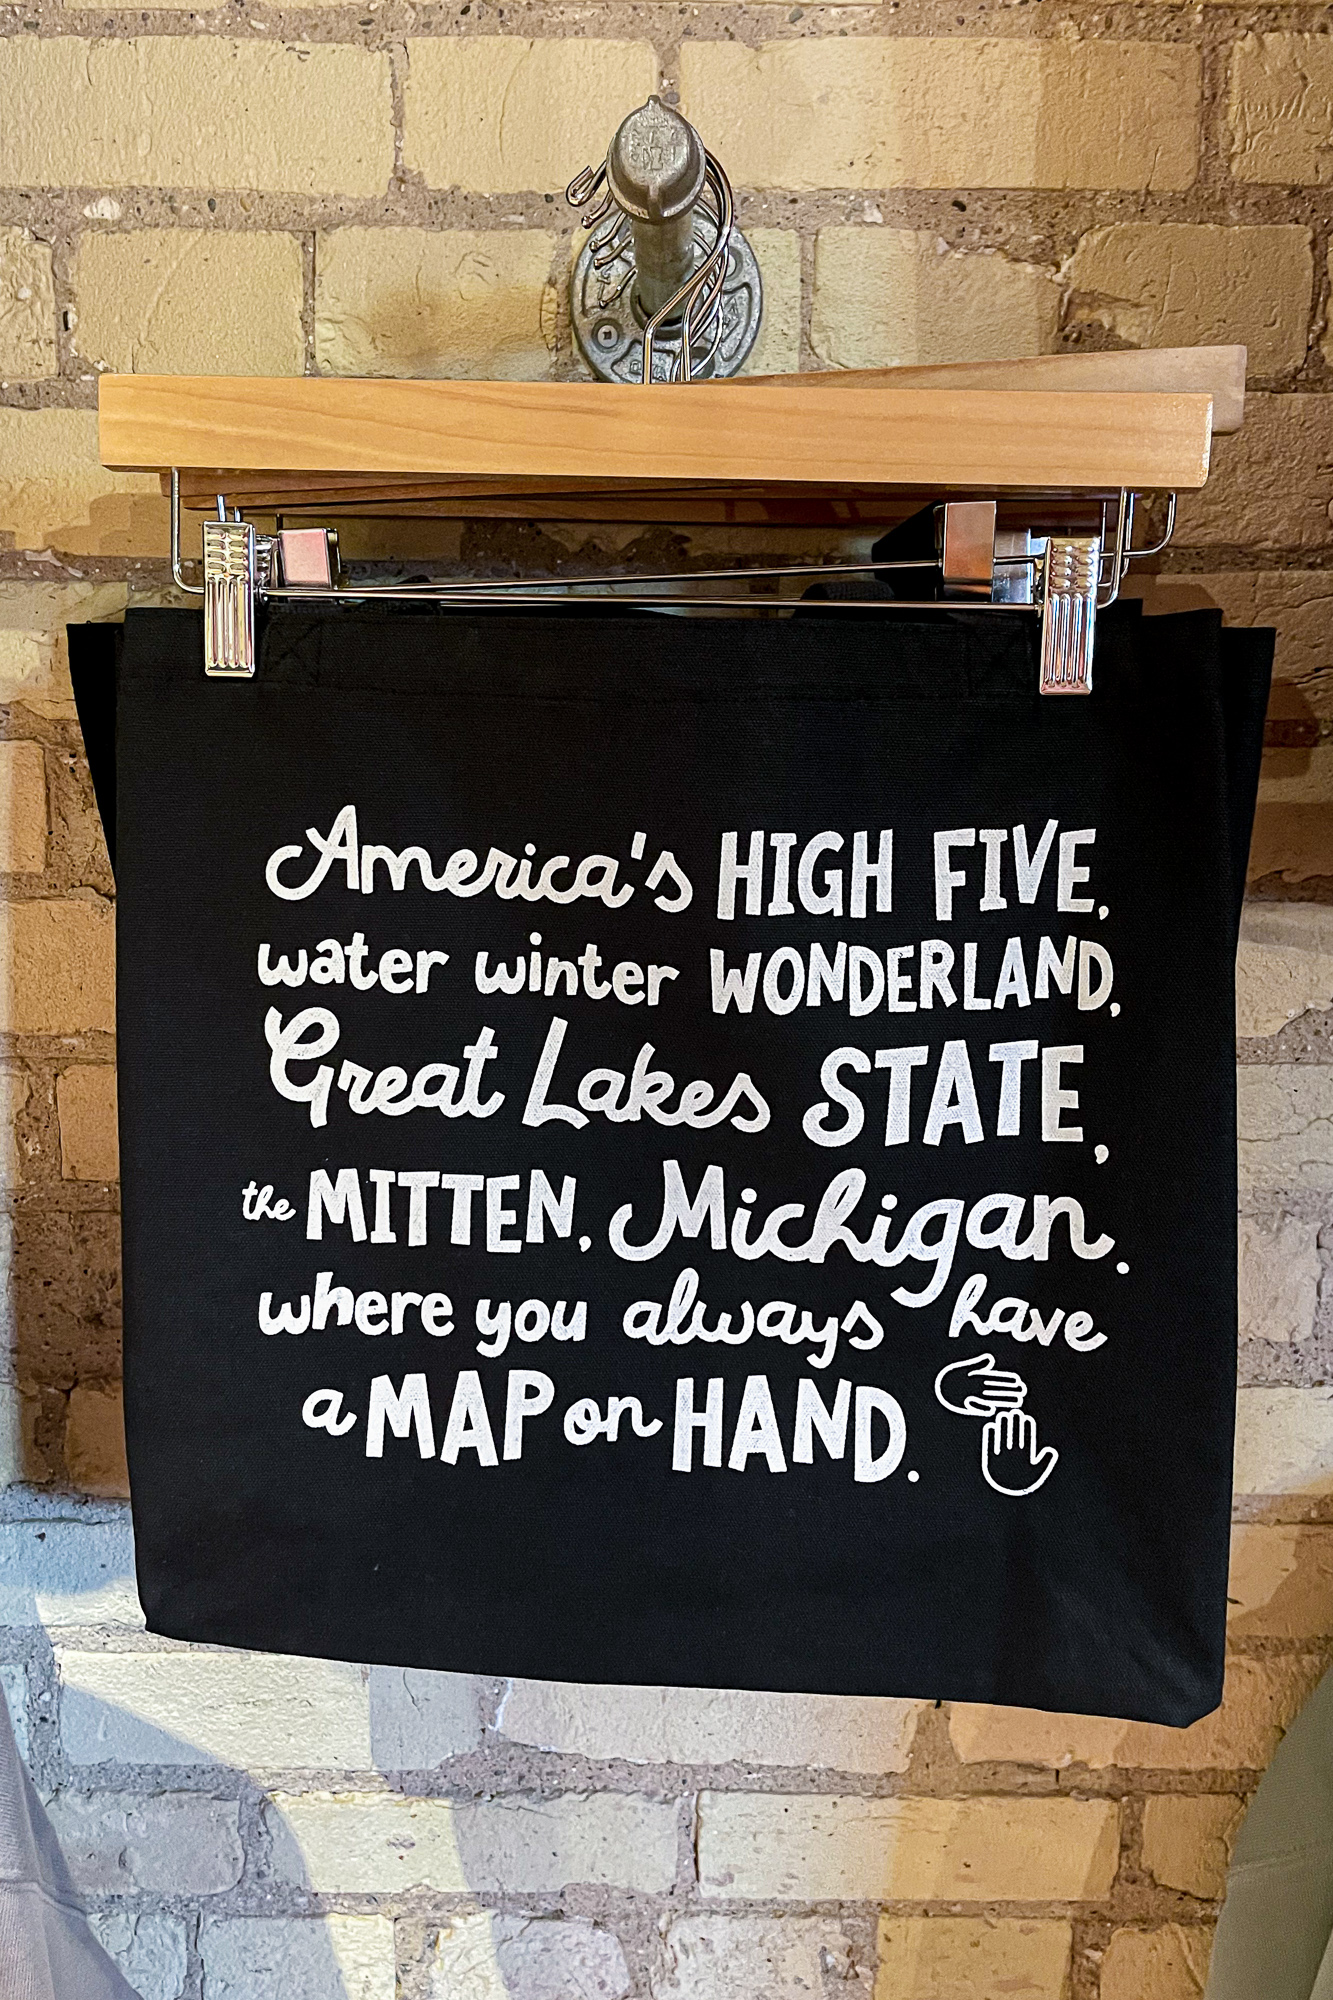 America's HIGH FIVE,
water winter WONDERLAND,
Great Lakes STATE,
the MITTEN, Michigan.
where you always have
a MAP on HAND.